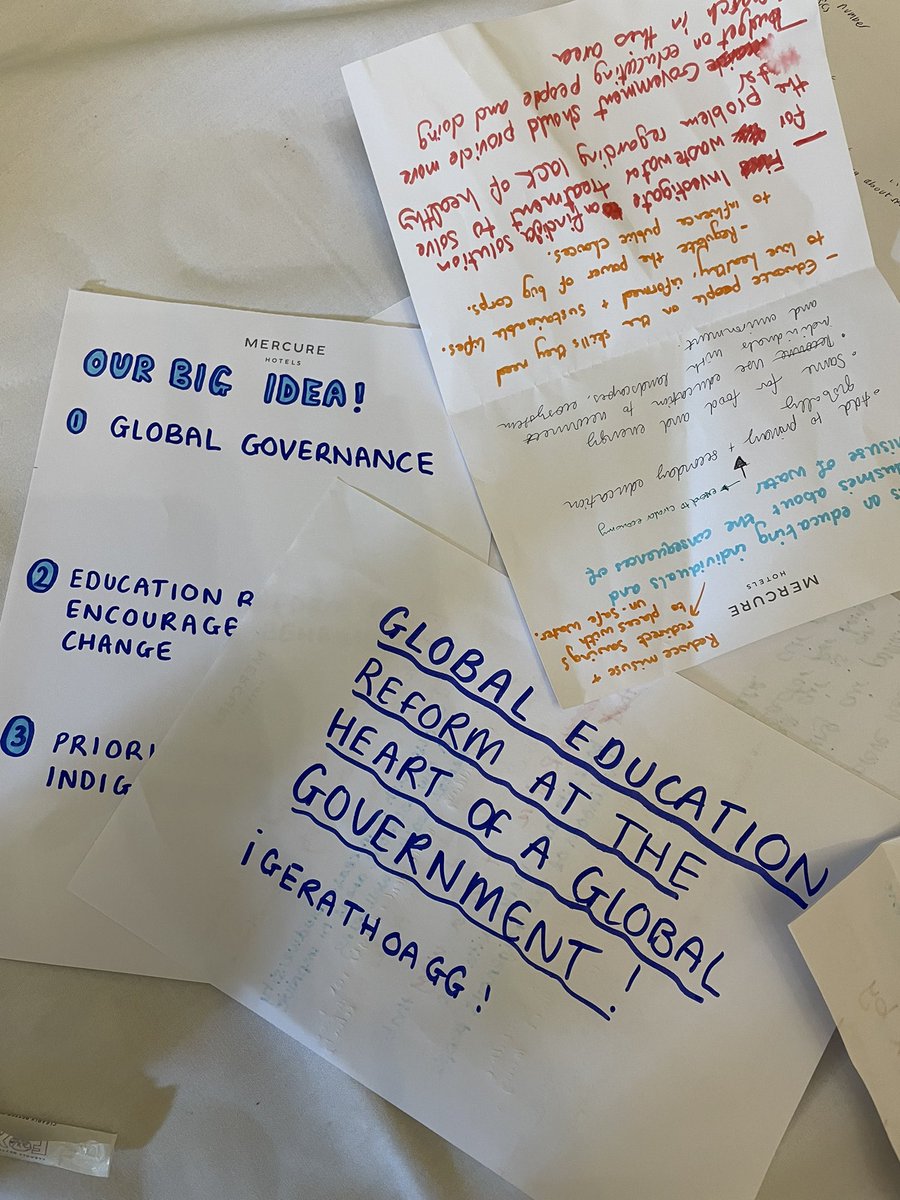 MERCURE
HOTELS
OUR BIG IDEA!
1 GLOBAL GOVERNANCE
2 EDUCATION R
ENCOURAGE
CHANGE
3 PRIORI
INDIG
GLOBAL EDUCATION
REFORM AT THE
HEART OF A GLOBAL
GOVERNMENT!
¡GERATHOAGG!
Reduce misuse +
redirect savings
to places with
un-safe water.
MERCURE
HOTELS
on educating individuals and
about the consequences of
misuse of water
circular economy
• Add to primary + secondary education
globally
• Same for food and energy
use with education to reconnect
individuals with landscapes, ecosystem
and environment.
- Educate people on the skills they need
to live healthy, informed + sustainable lifes.
- Regulate the power of big corps.
to influence public choices.
Investigate a treatment
waste water regarding lack of healthy
- for finding solution to solve
the problem
Government should provide more
budget on educating people and doing
in this area
number
about